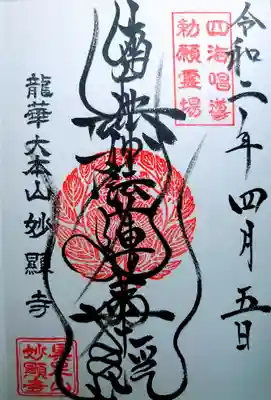 令和二年 四月 五日
四海唱導
勅願霊場
南無妙法蓮華経
龍華大本山妙顯寺
妙顕寺